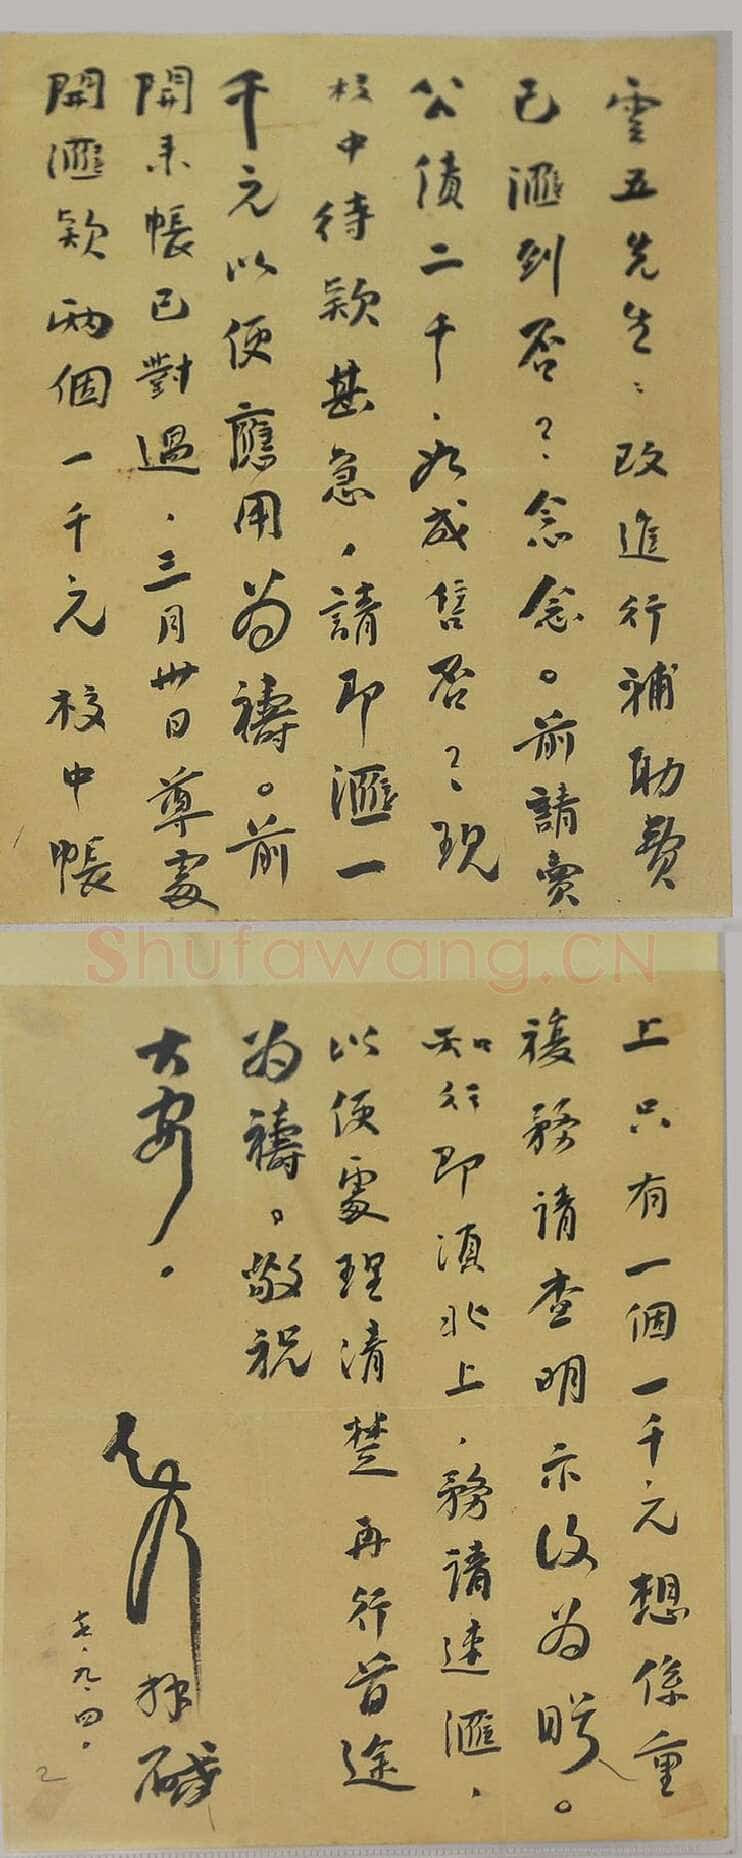 雲五先生：改進行補助費
已滙到否？念念。前請賣
公債二千，如成售否？現
校中待款甚急，請即滙一
千元以便應用為禱。前
開來帳已對過，三月卅日尊處
開滙款兩個一千元校中帳
Shufawang.CN
上只有一個一千元想係重
複務請查明示復為盼。
知行即須北上，務請速滙，
以便處理清楚再行首途
為禱。敬祝
大安。
知行 拜啟
九、四。
2